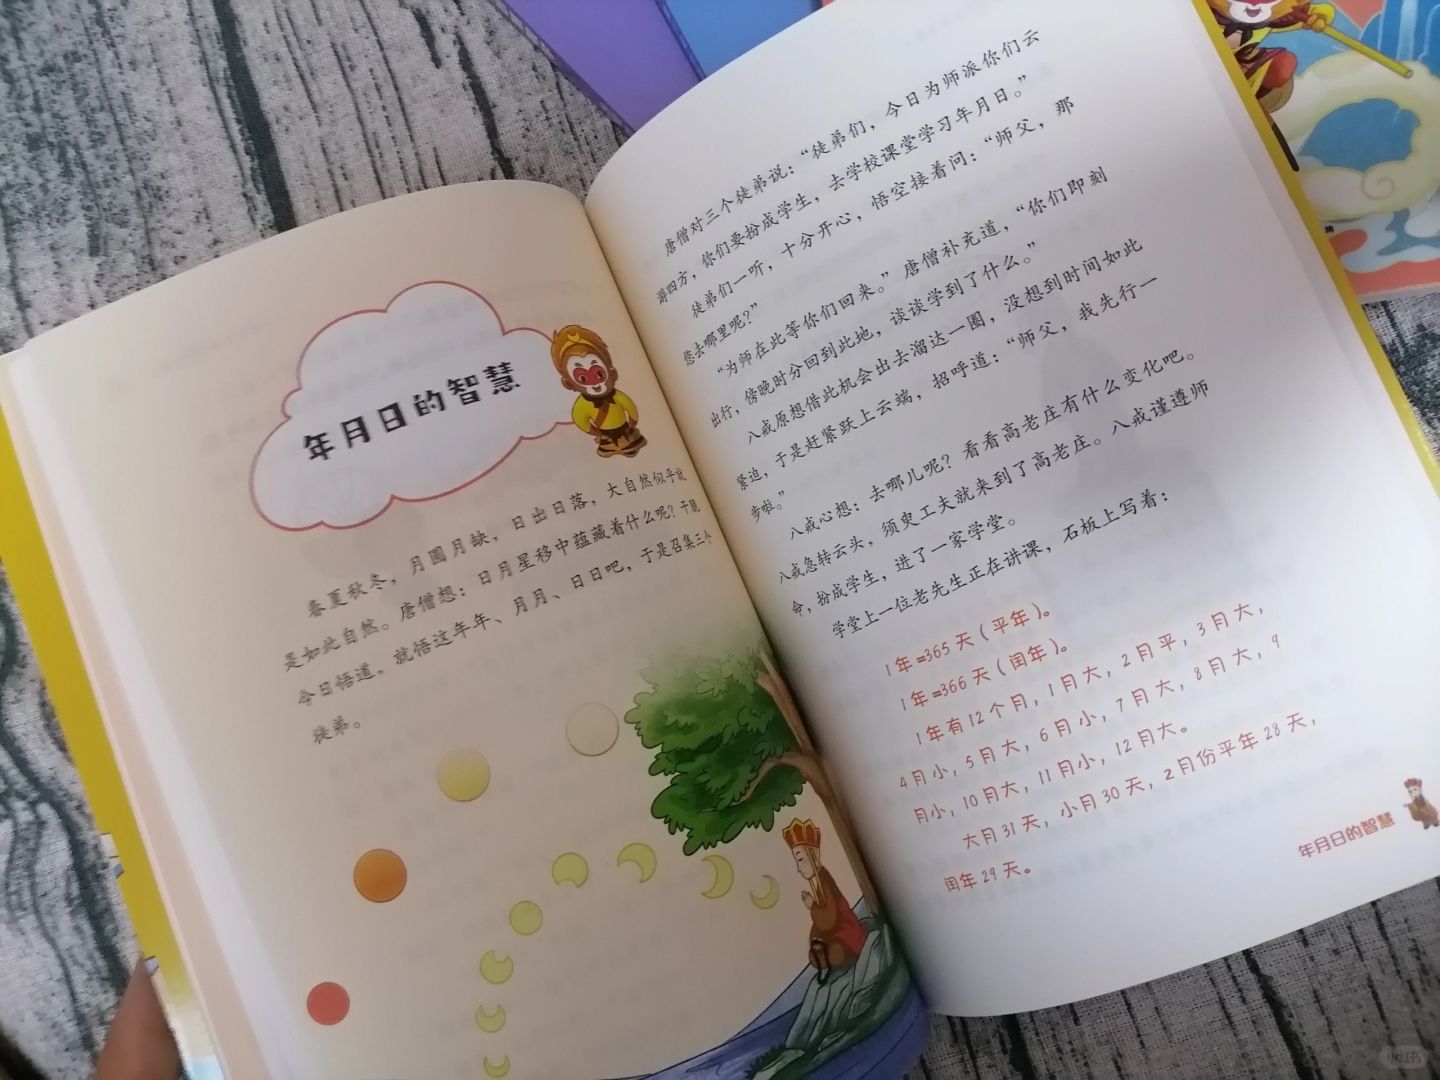 年月日的智慧
春夏秋冬，月圆月缺，日出日落，大自然似乎就
是如此自然。唐僧想：日月星移中蕴藏着什么呢？干脆
今日悟道，就悟这年年、月月、日日吧，于是召集三个
徒弟。
唐僧对三个徒弟说：“徒弟们，今日为师派你们云
游四方，你们要扮成学生，去学校课堂学习年月日。”
徒弟们一听，十分开心，悟空接着问：“师父，那
您去哪里呢？”
“为师在此等你们回来。”唐僧补充道，“你们即刻
出行，傍晚时分回到此地，谈谈学到了什么。”
八戒原想借此机会出去溜达一圈，没想到时间如此
紧迫，于是赶紧跃上云端，招呼道：“师父，我先行一
步啦。”
八戒心想：去哪儿呢？看看高老庄有什么变化吧。
八戒急转云头，须臾工夫就来到了高老庄。八戒谨遵师
命，扮成学生，进了一家学堂。
学堂上一位老先生正在讲课，石板上写着：
1年=365天（平年）。
1年=366天（闰年）。
1年有12个月，1月大，2月平，3月大，
4月小，5月大，6月小，7月大，8月大，9
月小，10月大，11月小，12月大。
大月31天，小月30天，2月份平年28天，
闰年29天。
年月日的智慧
小红书